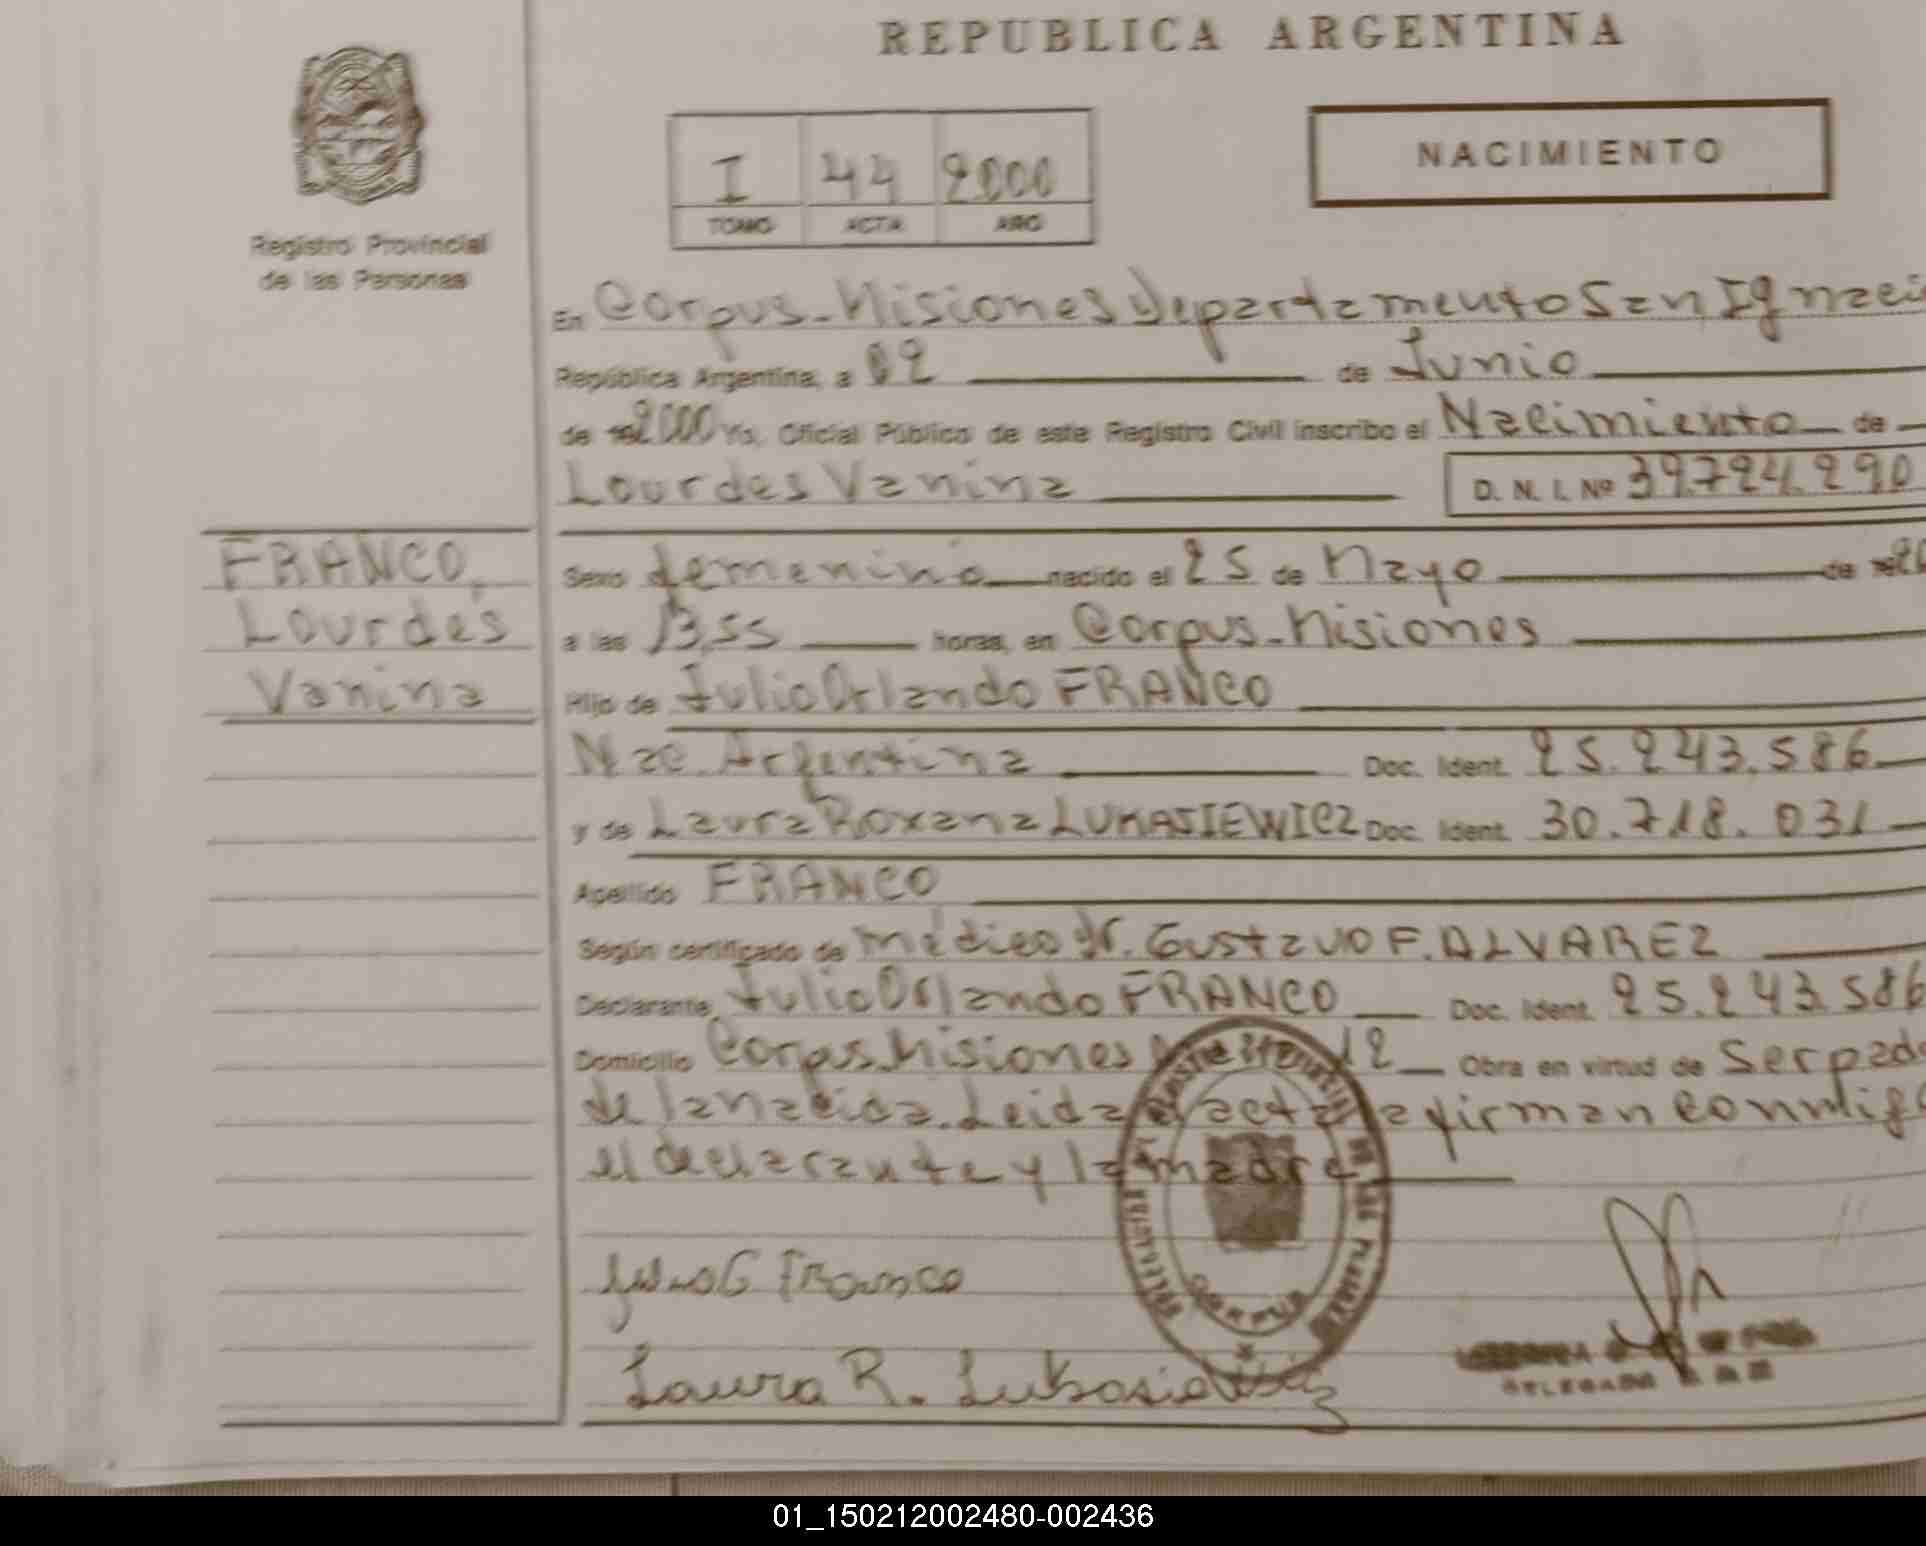 REPUBLICA ARGENTINA
NACIMIENTO
I 44 2000
TOMO ACTA AÑO
Registro Provincial
de las Personas
En Corpus-Misiones Departamento San Ignaci
República Argentina, a 02 de Junio
de 2000 Yo, Oficial Público de este Registro Civil inscribo el Nacimiento de
Lourdes Vanina D. N. I. Nº 39.724.290
FRANCO,
Lourdes
Vanina
Sexo femenino nacido el 25 de Mayo de
a las 13,55 horas, en Corpus-Misiones
Hijo de Julio Orlando FRANCO
Nac. Argentina Doc. Ident. 25.243.586
y de Laura Roxana LUKASIEWICZ Doc. Ident. 30.718.031
Apellido FRANCO
Según certificado de médico Dr. Gustavo F. ALVAREZ
Declarante Julio Orlando FRANCO Doc. Ident. 25.243.586
Domicilio Corpus Misiones 12 Obra en virtud de Ser pad
de la nacida. Leida acta la firman conmig
el declarante y la madre
Franco
Laura R. Lukasiewicz
CORPUS
DELEGADO
01_150212002480-002436